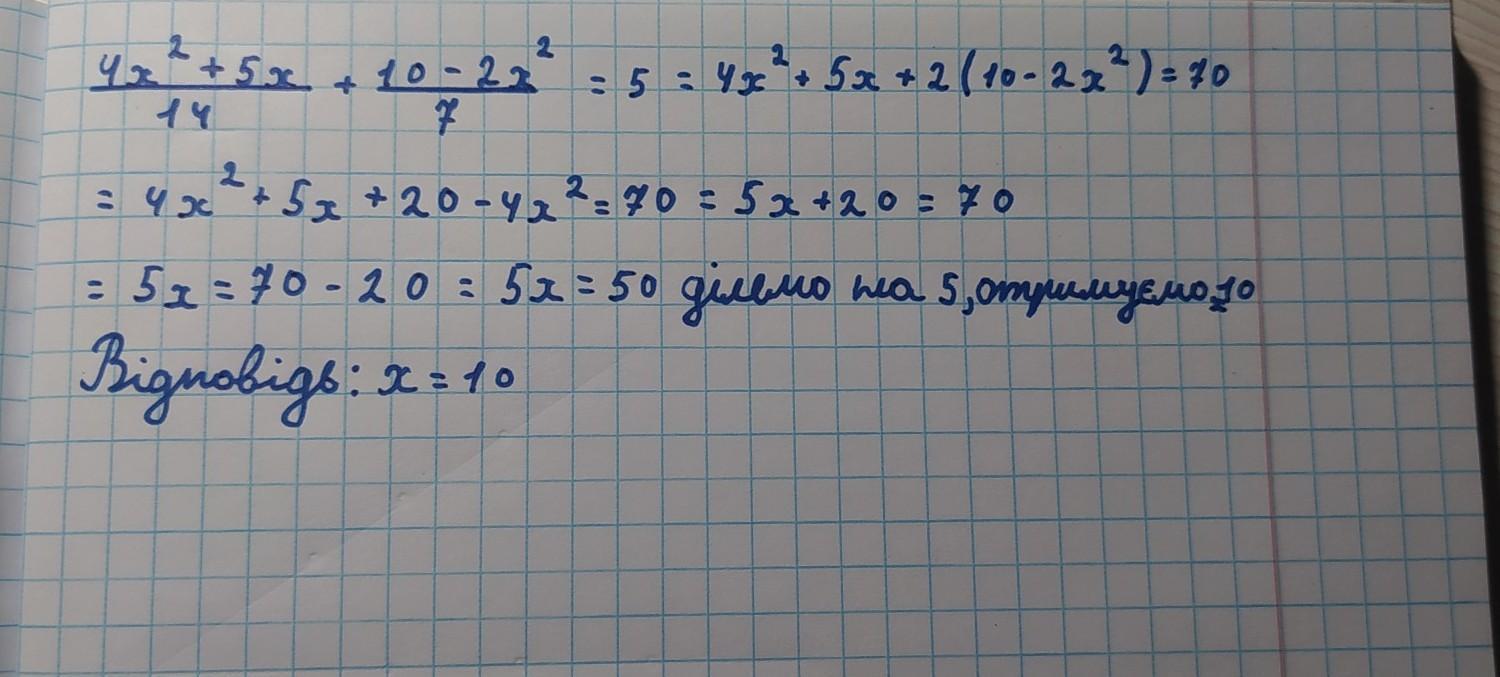 4x² + 5x / 14 + 10 - 2x² / 7 = 5 = 4x² + 5x + 2(10 - 2x²) = 70
= 4x² + 5x + 20 - 4x² = 70 = 5x + 20 = 70
= 5x = 70 - 20 = 5x = 50 ділемо на 5, отримуємо 10
Відповідь: x = 10